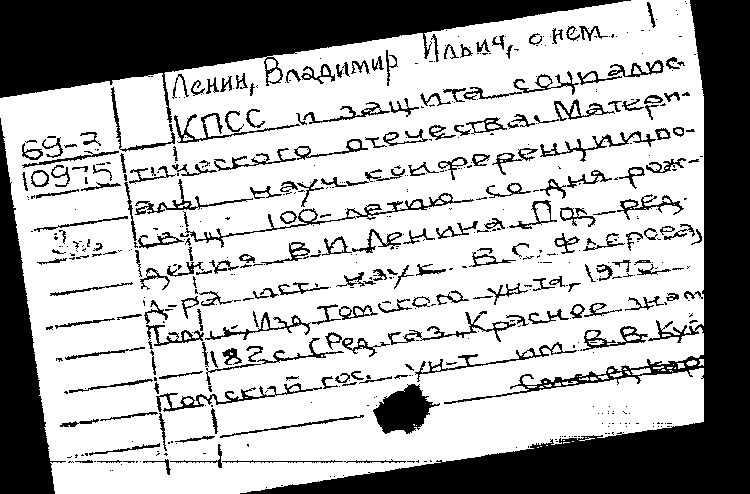 1
Ленин, Владимир Ильич, о нем.
КПСС и защита социалис-
69-3
10975
тического отечества. Матери-
алы науч. конференции, по-
свящ. 100-летию со дня рож-
дения В.И. Ленина. Под ред.
д-ра ист. наук В.С. Флерова,
Томск, Изд. Томского ун-та, 1970
182 с. (Ред. газ. Красное знам
Томский гос. ун-т им. В.В. Куй
См. след. кар